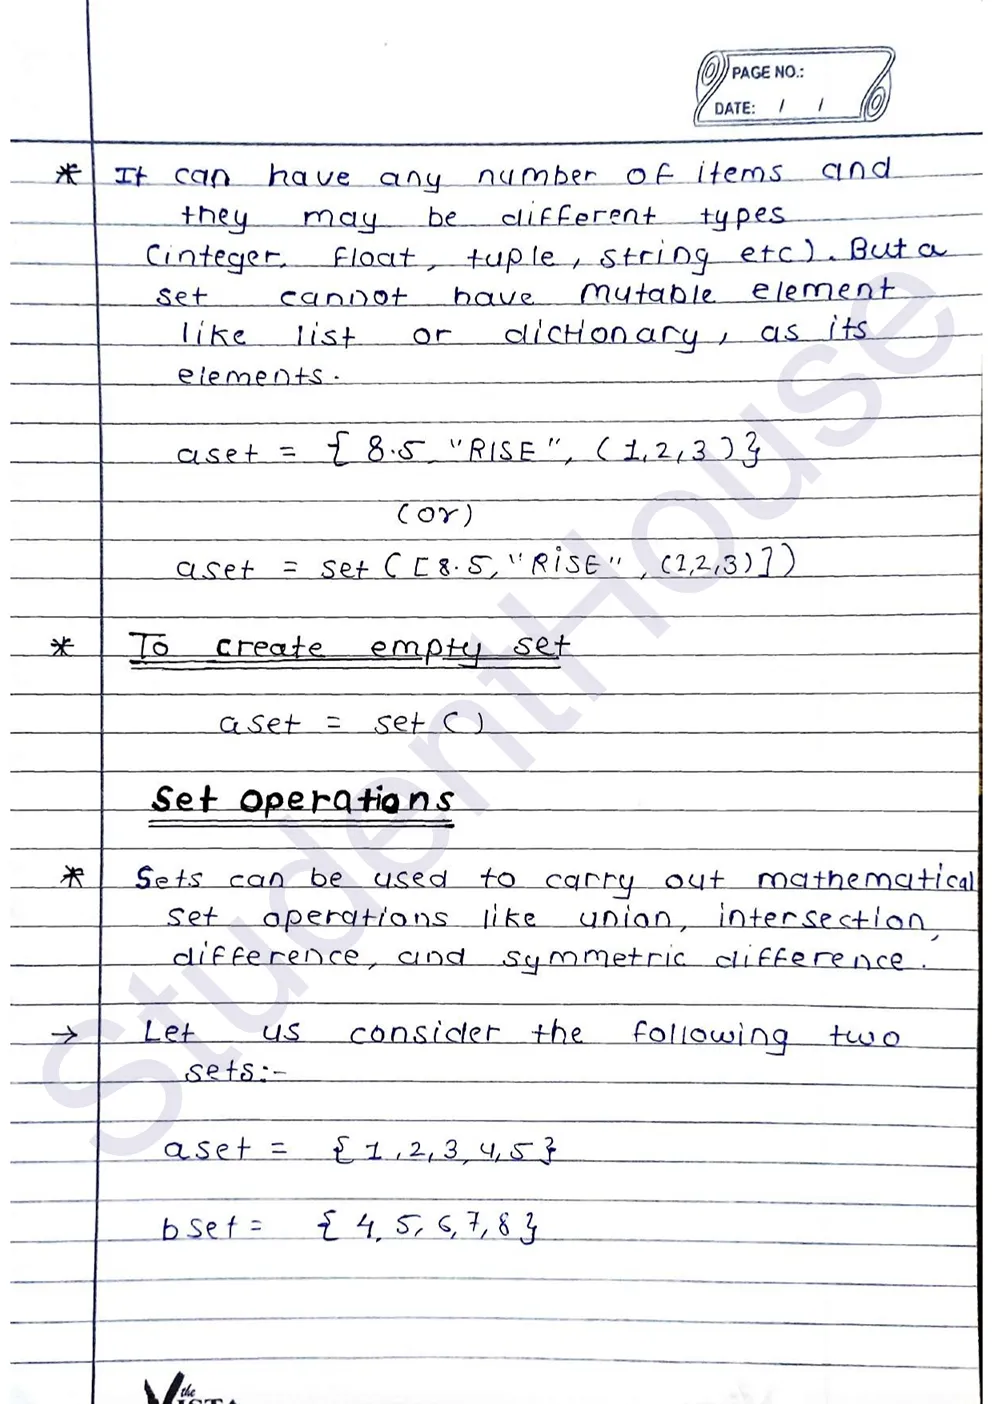 PAGE NO.:
DATE: / /
* It can have any number of items and
they may be different types
(integer, float, tuple, string etc). But a
set cannot have mutable element
like list or dictionary, as its
elements.
aset = { 8.5, "RISE", (1,2,3)}
(or)
aset = set ([8.5, "RiSE", (1,2,3)])
* To create empty set
aset = set ()
Set operations
* Sets can be used to carry out mathematical
set operations like union, intersection,
difference, and symmetric difference.
→ Let us consider the following two
sets:-
aset = {1,2,3,4,5}
bset = {4,5,6,7,8}
StudentHouse
the
VISTA